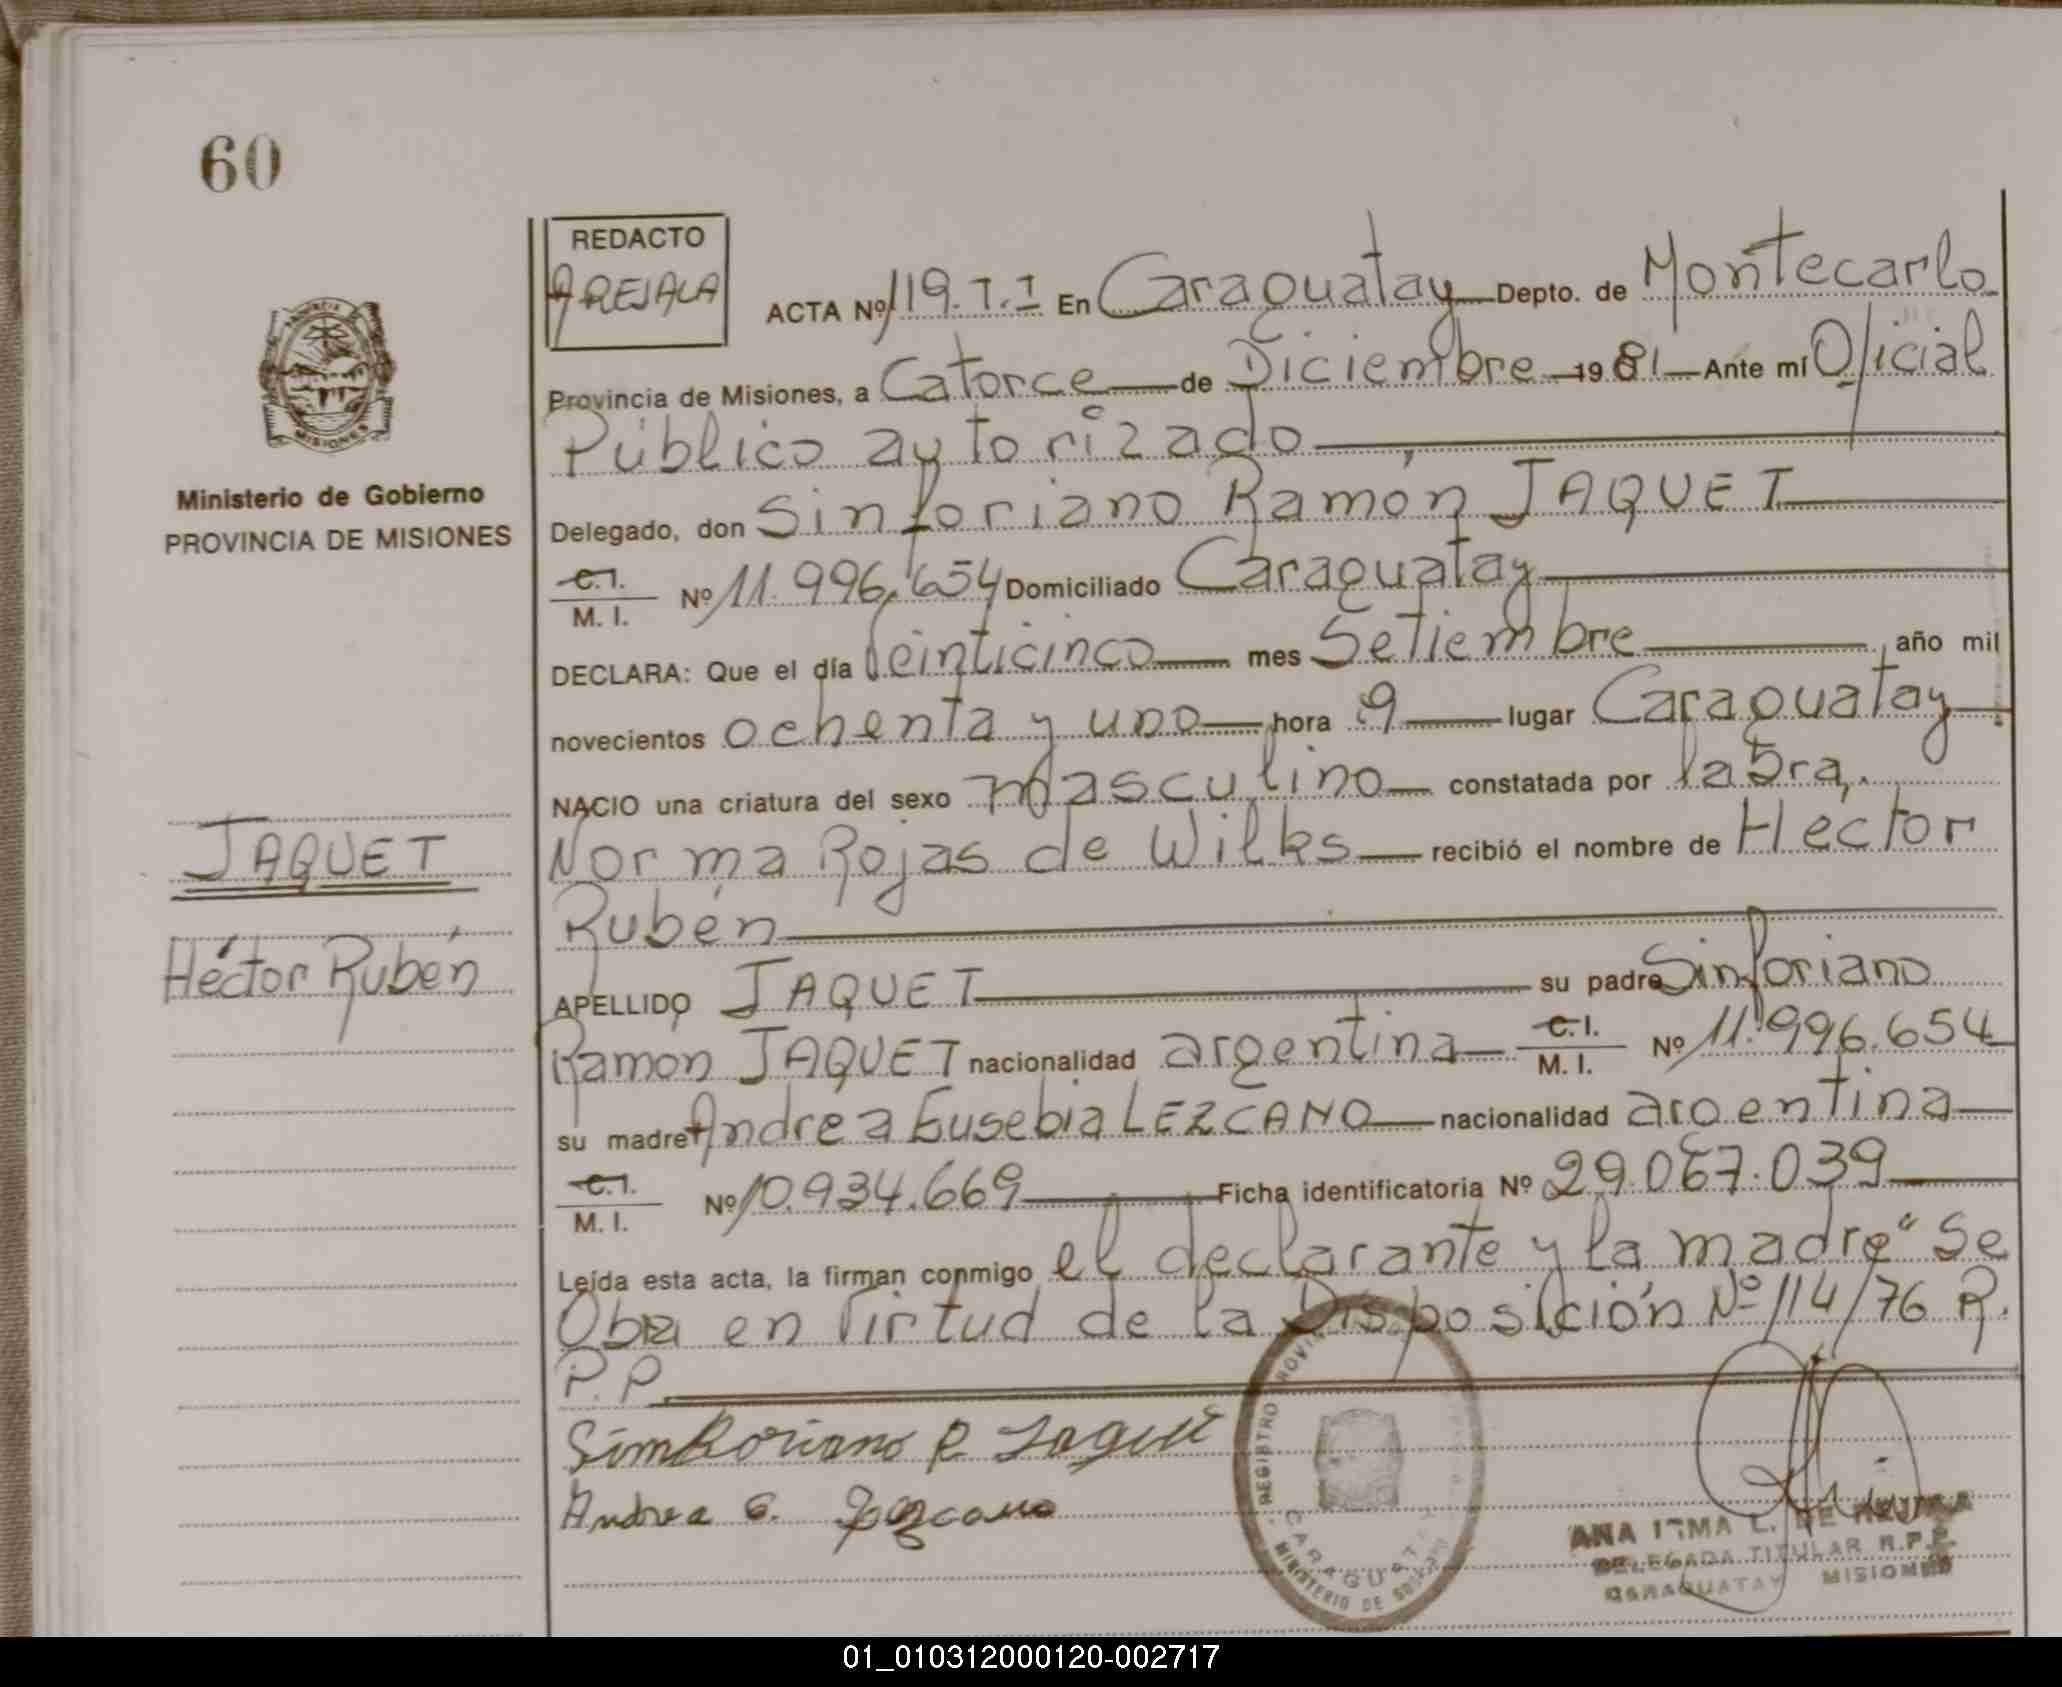 60
REDACTO
AREJALA
ACTA Nº 119.T.I En Caraguatay Depto. de Montecarlo
Provincia de Misiones, a Catorce de Diciembre 1981 Ante mí Oficial
Público autorizado
Delegado, don Sinforiano Ramón JAQUET
C.I.
M. I. Nº 11.996.654 Domiciliado Caraguatay
DECLARA: Que el día Veinticinco mes Setiembre, año mil
novecientos ochenta y uno hora 9 lugar Caraguatay
NACIO una criatura del sexo masculino constatada por la Sra.
Norma Rojas de Wilks recibió el nombre de Héctor
Rubén
APELLIDO JAQUET su padre Sinforiano
Ramon JAQUET nacionalidad argentina C.I. M. I. Nº 11.996.654
su madre Andrea Eusebia LEZCANO nacionalidad argentina
C.I.
M. I. Nº 10.934.669 Ficha identificatoria Nº 29.067.039
Leída esta acta, la firman conmigo el declarante y la madre" Se
Obra en Virtud de la Disposición Nº 114/76 R.
P.P
Simforiano R Jaquet
Andrea E. Lezcano
PROVINCIA
MISIONES
Ministerio de Gobierno
PROVINCIA DE MISIONES
JAQUET
Héctor Rubén
REGISTRO PROVIN
CARAGUATAY
MINISTERIO DE GOBIERNO
ANA IRMA L. DE
DELEGADA TITULAR R.P.P
CARAGUATAY MISIONES
01_010312000120-002717